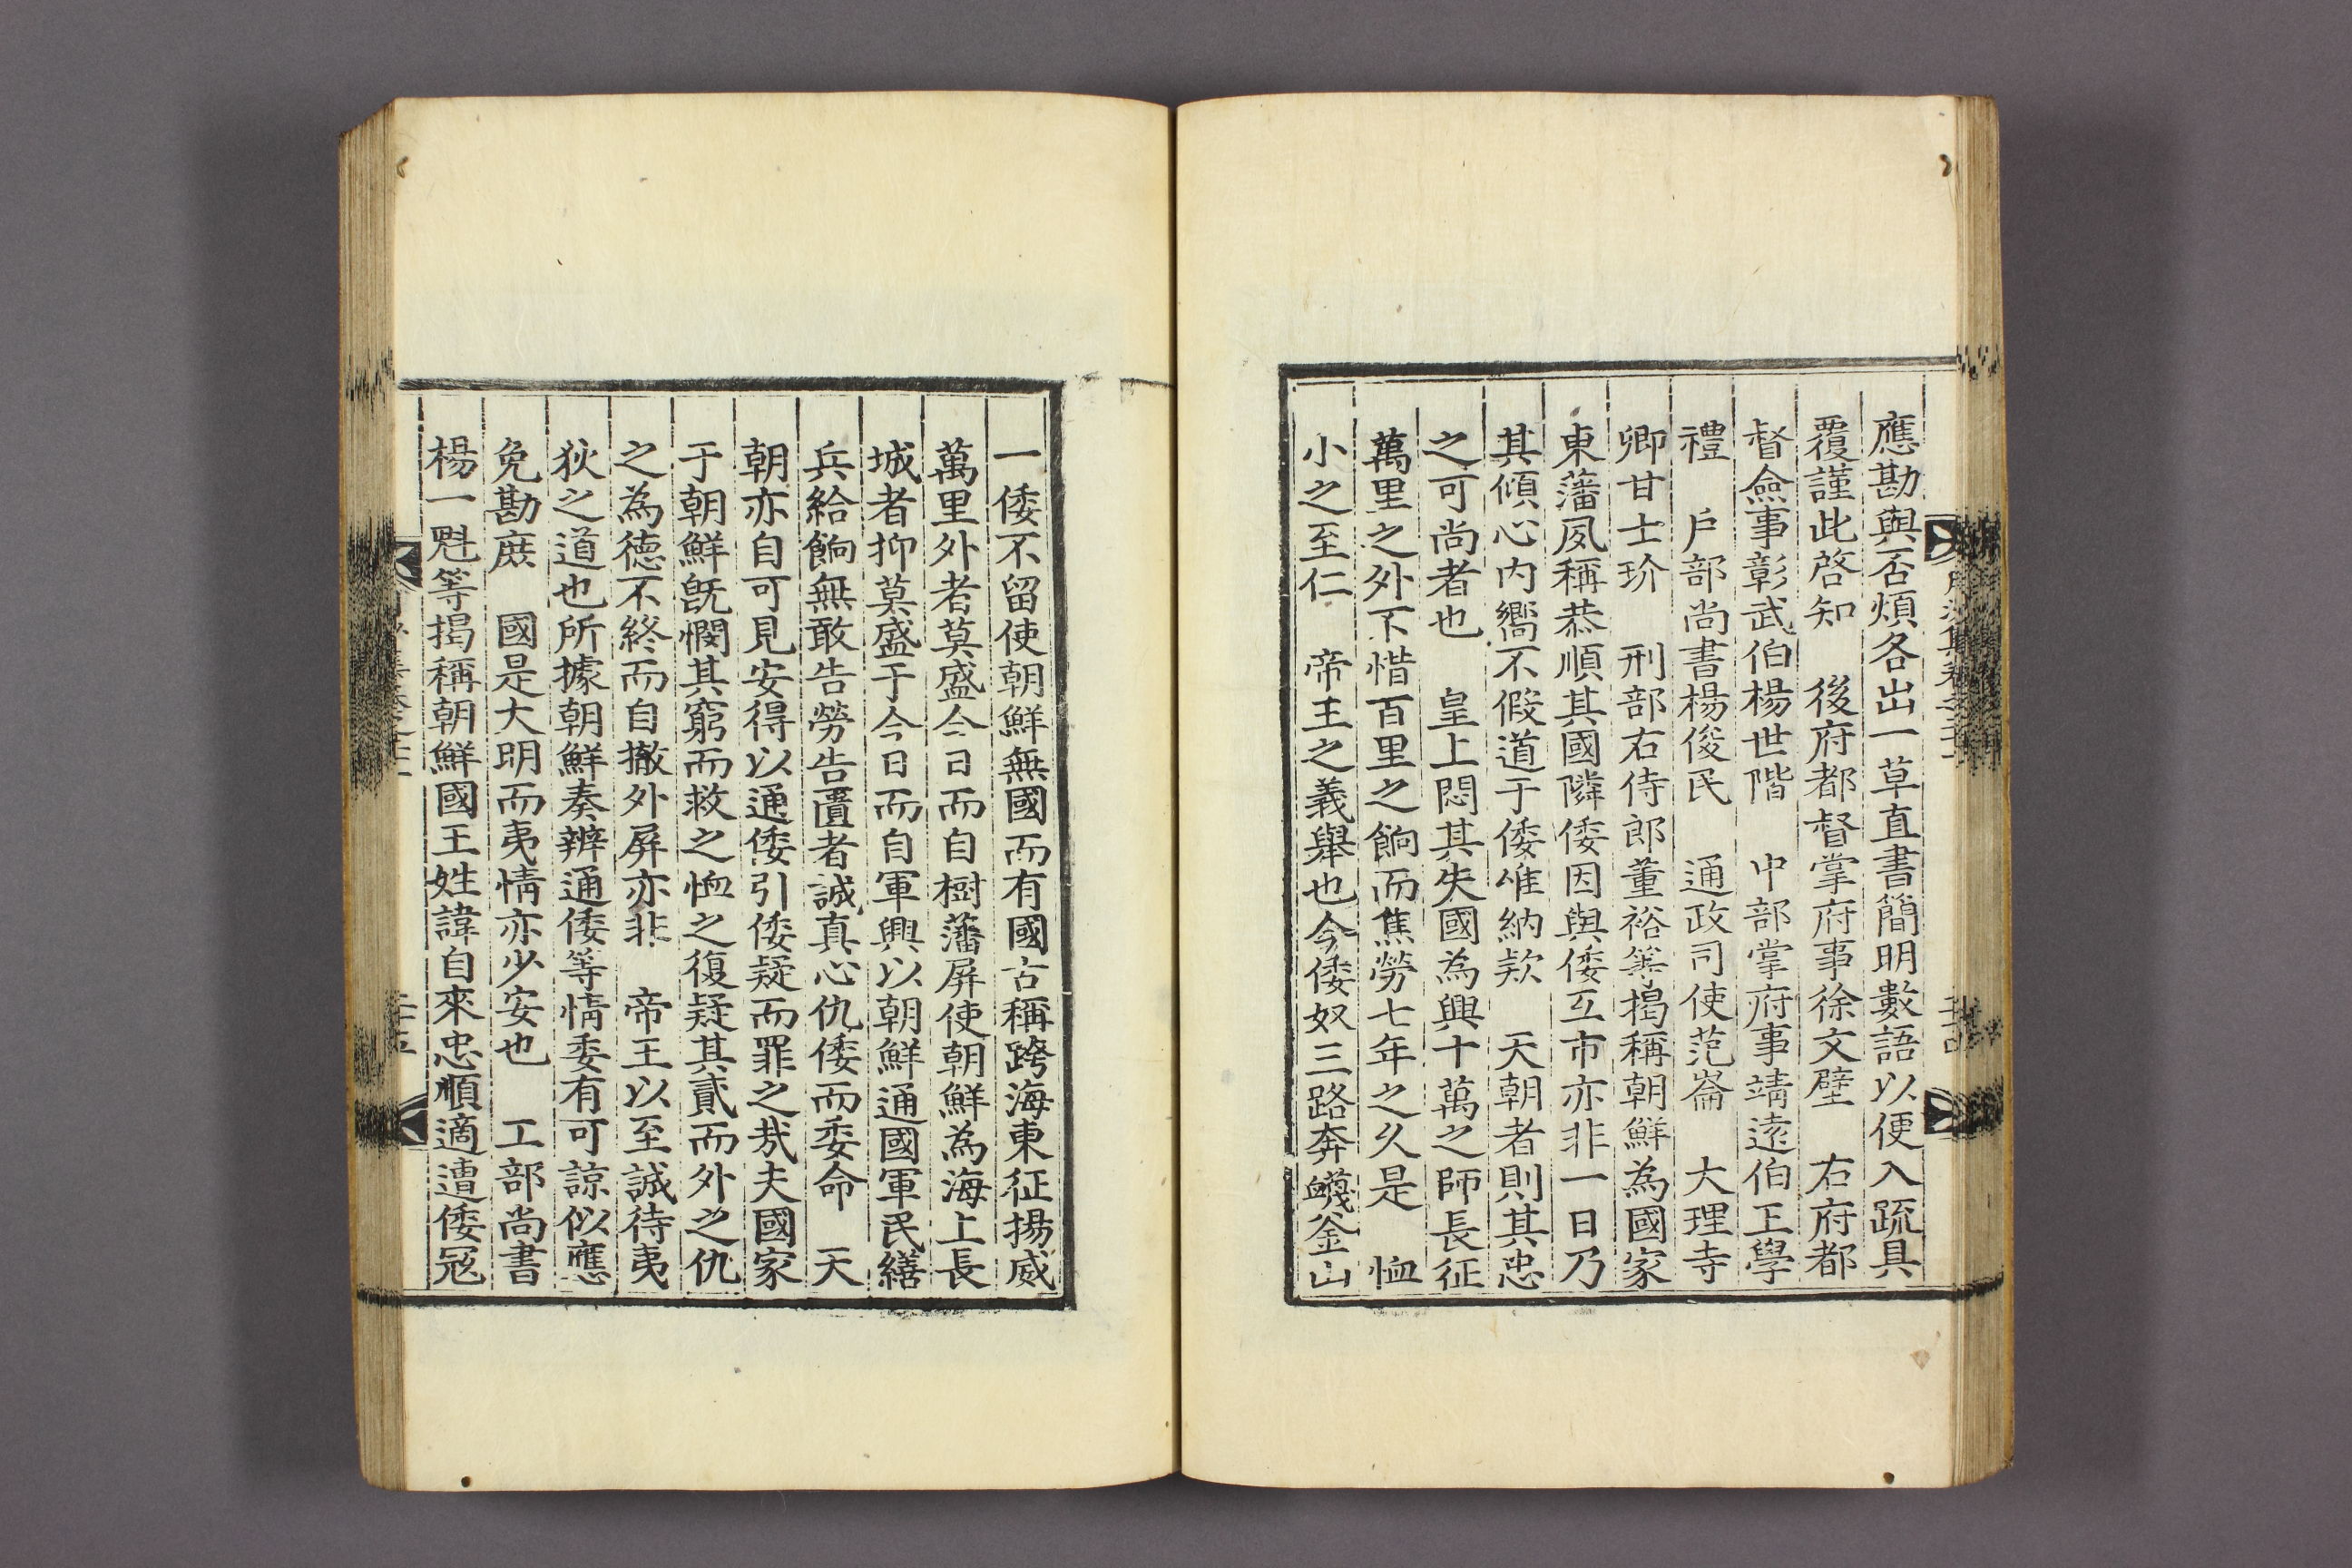 應勘與否煩各出一草直書簡明數語以便入疏具
覆謹此啓知 後府都督掌府事徐文璧 右府都
督僉事彰武伯楊世階 中部掌府事靖遠伯王學
禮 戶部尚書楊俊民 通政司使范崙 大理寺
卿甘士玠 刑部右侍郎董裕等揭稱朝鮮為國家
東藩夙稱恭順其國隣倭因與倭互市亦非一日乃
其傾心內嚮不假道于倭唯納款 天朝者則其忠
之可尚者也 皇上悶其失國為興十萬之師長征
萬里之外不惜百里之餉而焦勞七年之久是 恤
小之至仁 帝王之義舉也今倭奴三路奔衊釜山
一倭不留使朝鮮無國而有國古稱跨海東征揚威
萬里外者莫盛今日而自樹藩屏使朝鮮為海上長
城者抑莫盛于今日而自軍興以朝鮮通國軍民繕
兵給餉無敢告勞告匱者誠真心仇倭而委命 天
朝亦自可見安得以通倭引倭疑而罪之哉夫國家
于朝鮮旣憫其窮而救之恤之復疑其貳而外之仇
之為德不終而自撤外屏亦非 帝王以至誠待夷
狄之道也所據朝鮮奏辨通倭等情委有可諒似應
免勘庶 國是大明而夷情亦少安也 工部尚書
楊一魁等揭稱朝鮮國王姓諱自來忠順適遭倭冦